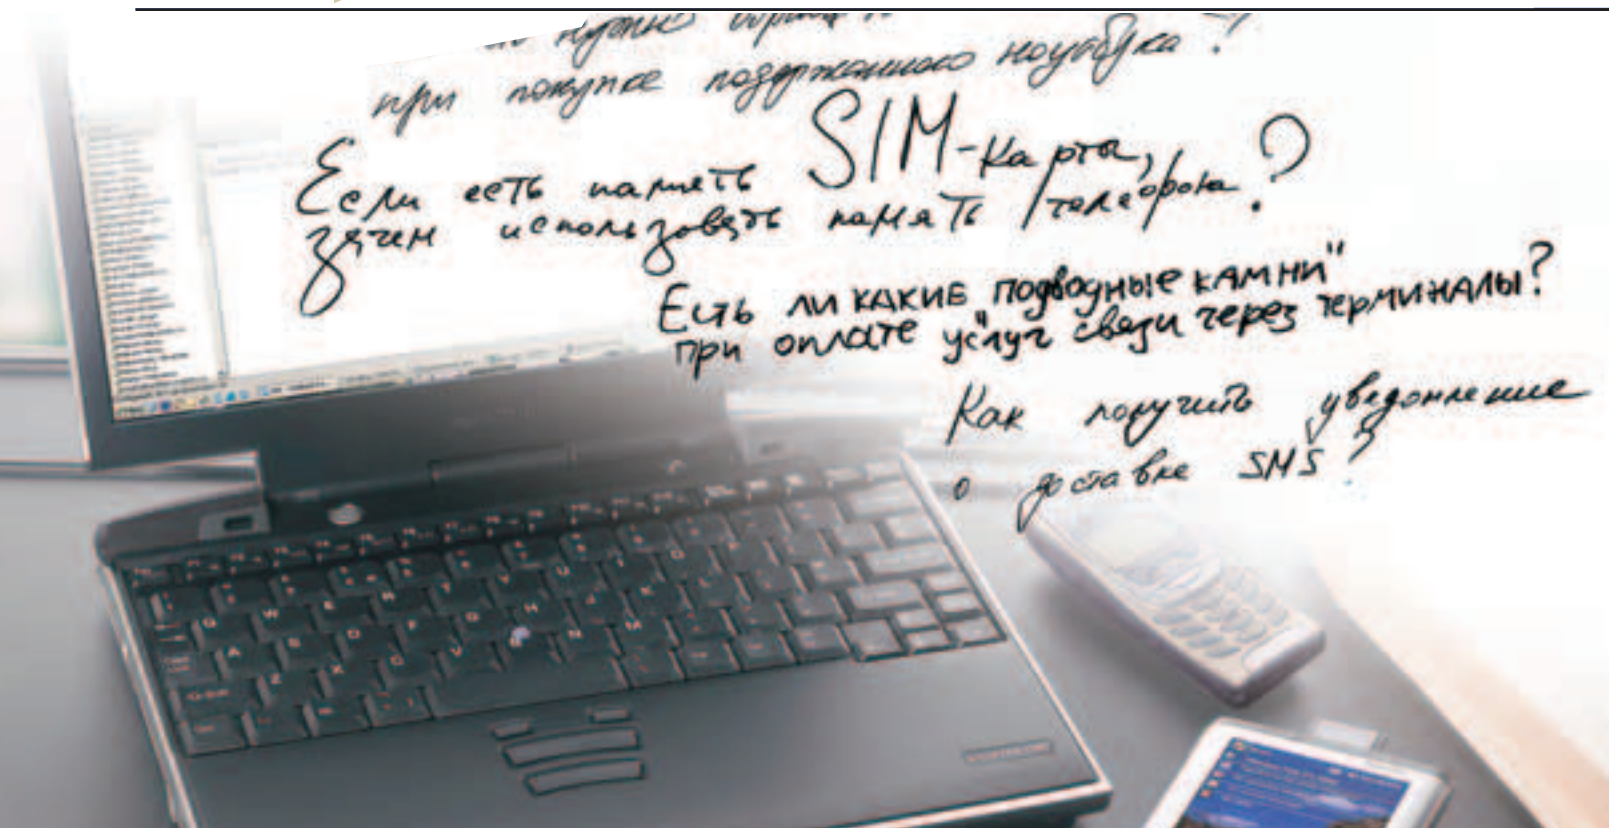 нужно
при покупке подержанного ноутбука?
Если есть память SIM-карты,
зачем использовать память телефона?
Есть ли какие "подводные камни"
при оплате услуг связи через терминалы?
Как получить уведомление
о доставке SMS?